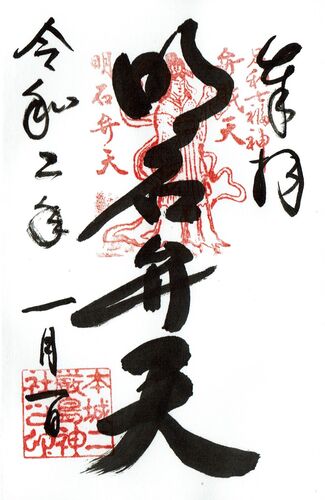 奉拝
足利七福神
明石弁天
明石弁天
令和二年
一月一日
本城二
厳島神
社之印